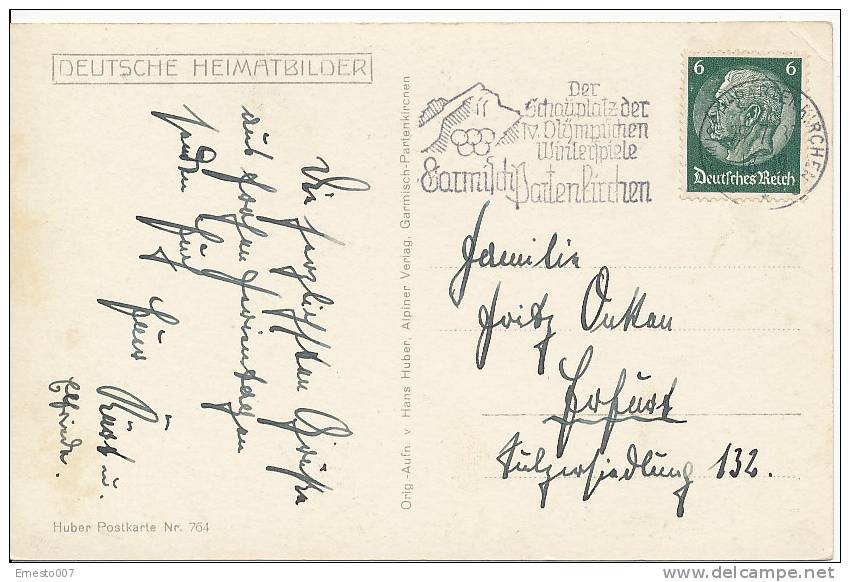 DEUTSCHE HEIMATBILDER
Die herzlichsten Grüße
aus frohen Ferientagen
senden Euch
Euer Kurt u.
Elfriede.
Huber Postkarte Nr. 764
Orig.-Aufn. v. Hans Huber, Alpiner Verlag, Garmisch-Partenkirchen
Der
Schauplatz der
IV. Olympischen
Winterspiele
Garmisch
Partenkirchen
6 6
Deutsches Reich
Familie
Fritz
Erfurt
Sulzersiedlung 132.
Ernesto007
www.delcampe.net